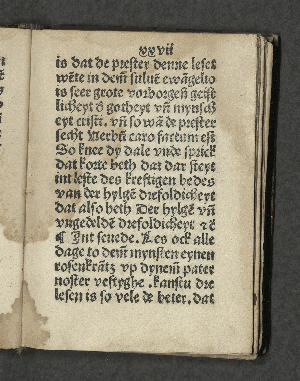 xxvii
is dat de prester denne leset
wēte in dem̄ suluē ewāgelio
is seer grote vorborgen̄ geist
licheyt d̓ gotheyt vn̄ mynsch
eyt cristi. vn̄ so wā de prester
secht Verbū caro factum est
So knee dy dale vnde sprick
dat korte beth dat dar steyt
int leste des kreftigen bedes
van der hylgē drefoldicheyt
dat also heth Der hylgē vn̄
vngedeldē drefoldicheyt ⁊c̄
¶ Int seuede. Les ock alle
dage to dem̄ mynsten eynen
rosenkrātz vp dynem̄ pater
noster vestyghe. kanstu dre
lesen is so vele de beter. dat